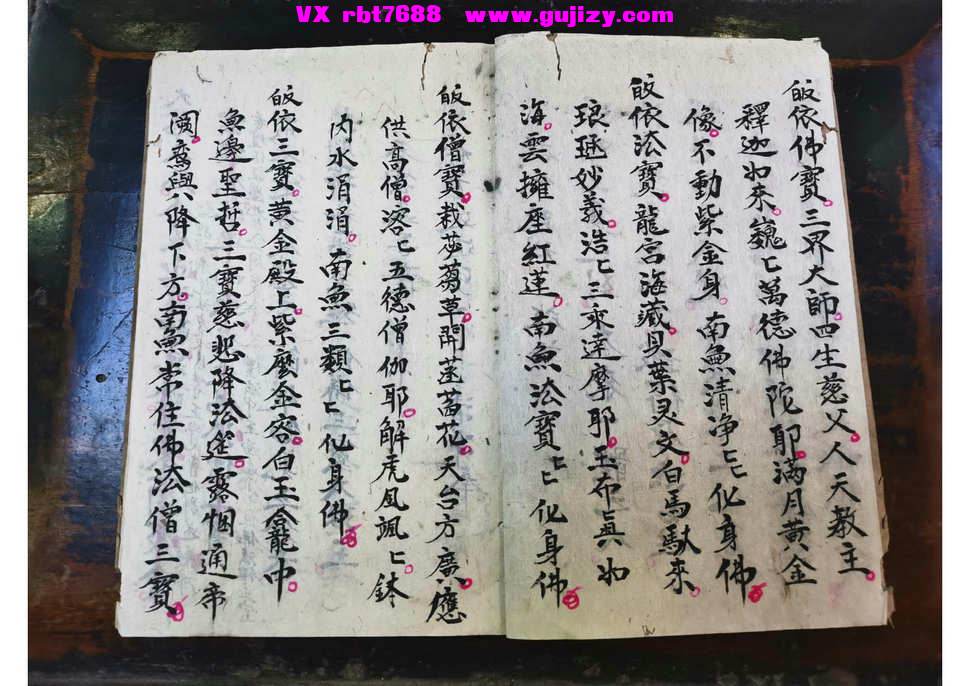 VX rbt7688 www.gujizy.com
皈依佛寶三界大師四生慈父人天教主
釋迦如来巍〻萬德佛陀耶滿月黄金
像不動紫金身南無清净〻〻化身佛
皈依法寶龍宫海藏貝葉灵文白馬馱来
琅琊妙義浩〻三乘達摩耶玉布〻真如
海雲擁座紅蓮南無法寶〻〻化身佛
皈依僧寶栽莎蒭草開荎菡花天台方廣應
供高僧溶〻五德僧伽耶解虎風颯〻鉢
内水涓涓南無三類〻〻化身佛
皈依三寶黄金殿上紫麽金容白玉龕中
魚邊聖哲三寶慈悲降法筵露悃通帝
阙鸞輿降下方南無常住佛法僧三寶